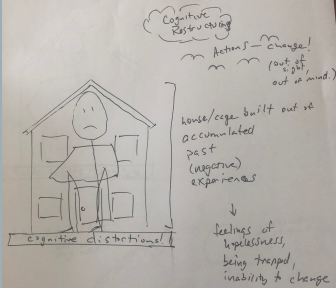 Cognitive
Restructuring
Actions — change!
(out of
sight,
out of mind.)
house/cage built out of
accumulated
past
(negative)
experiences
feelings of
hopelessness,
being trapped,
inability to change
cognitive distortions!